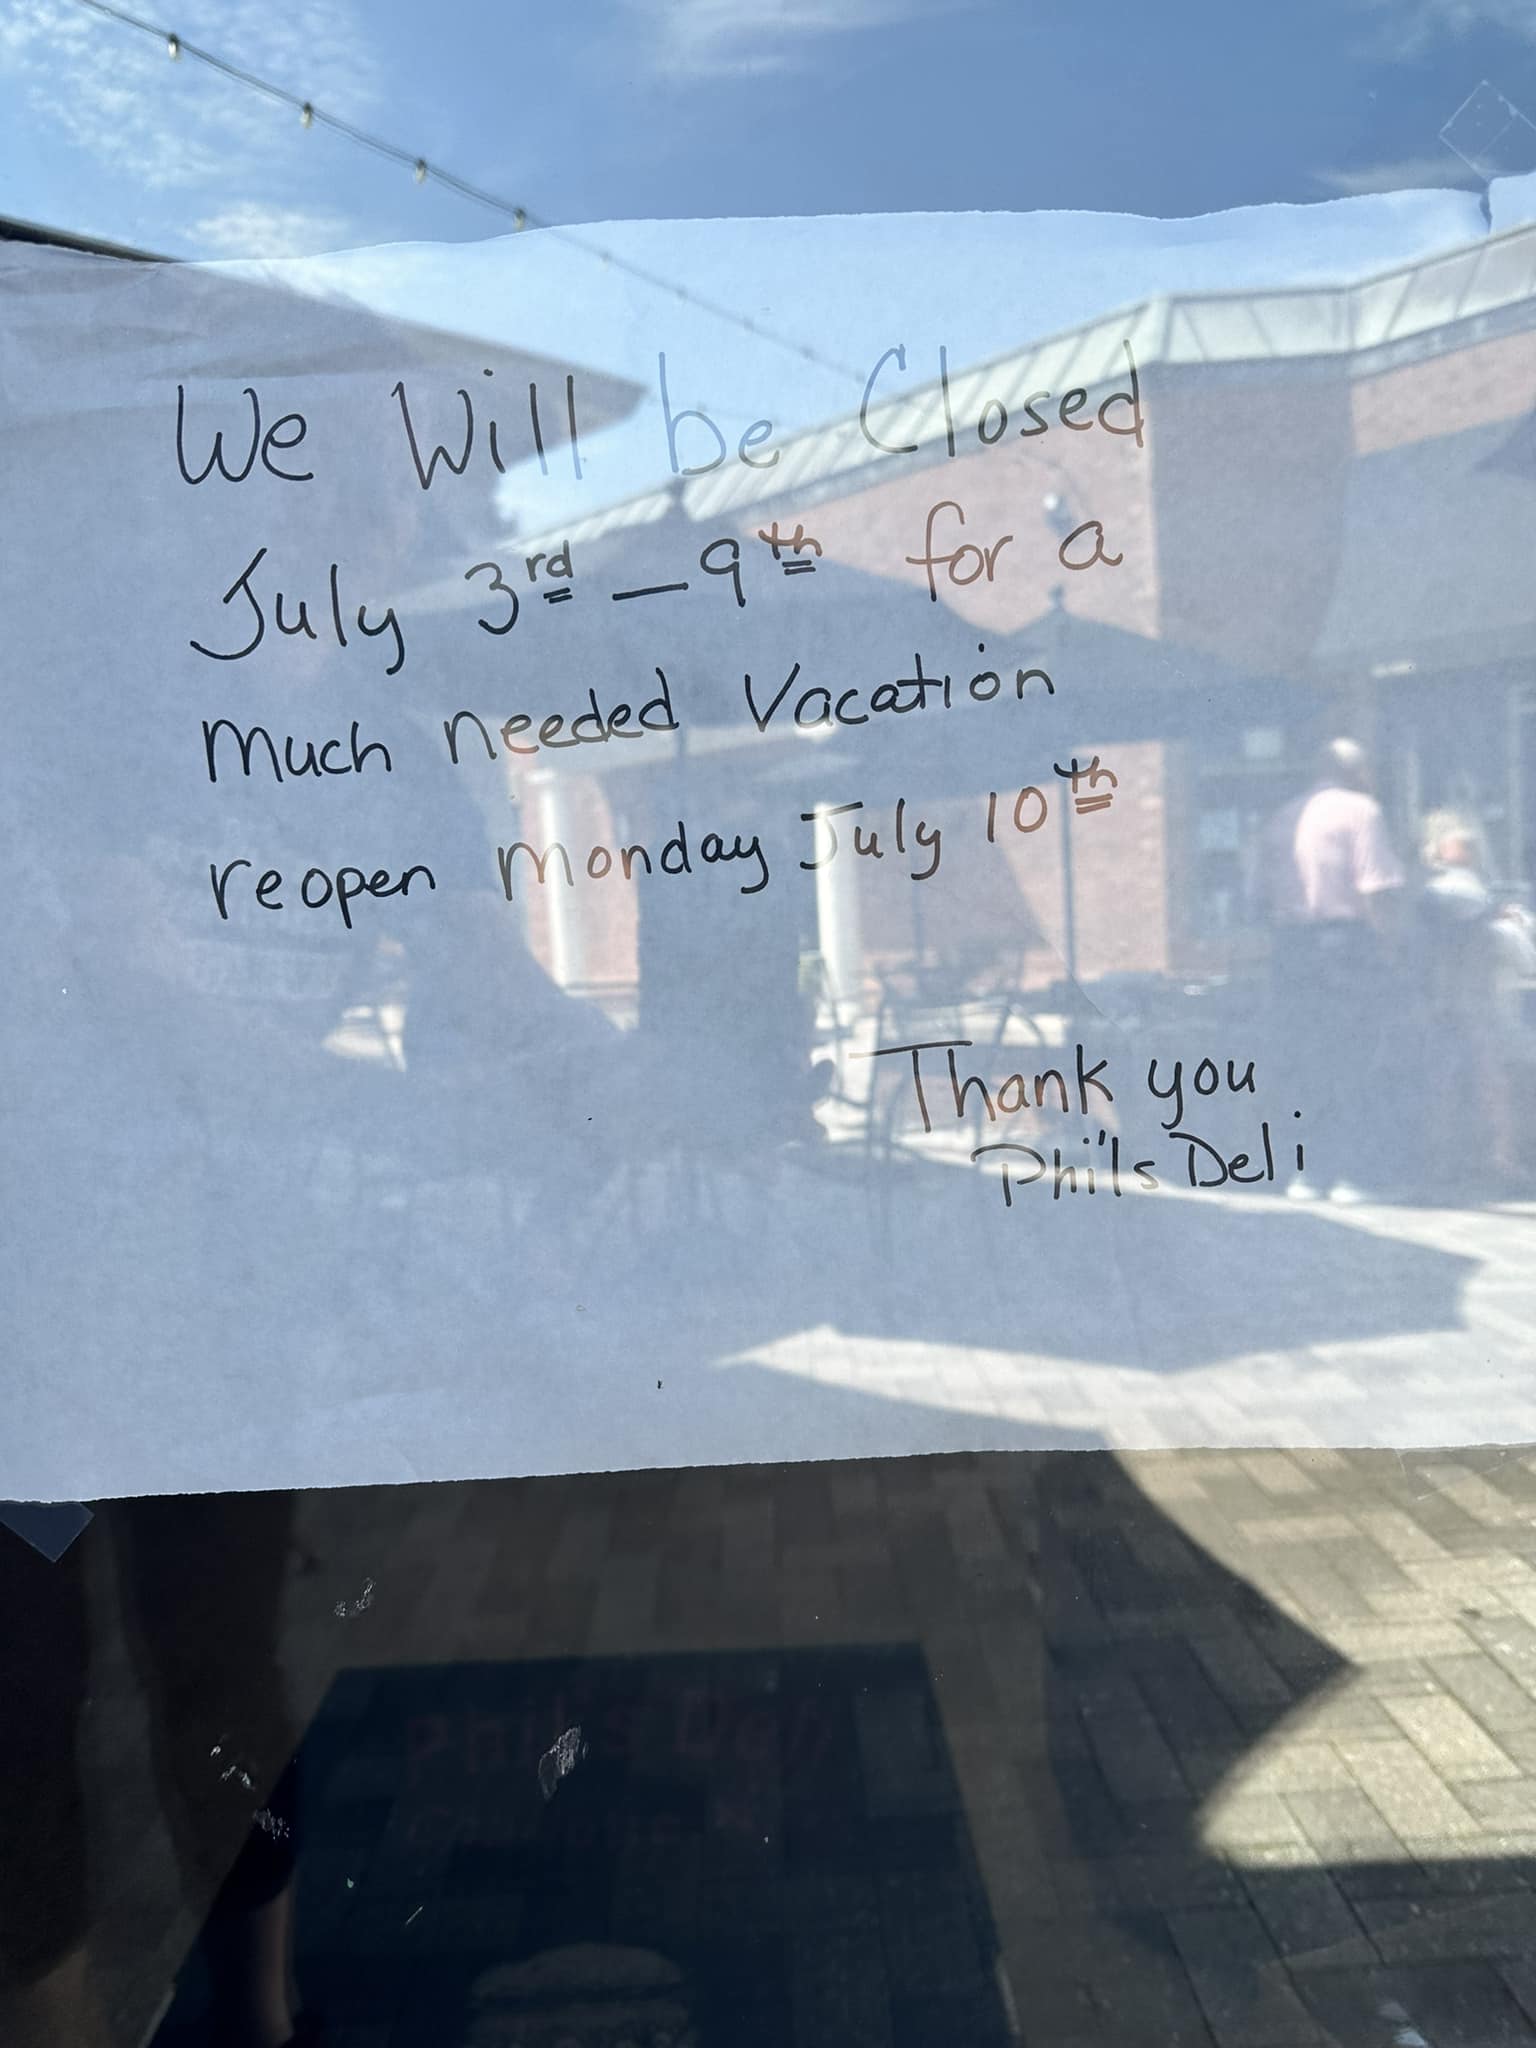 We Will be Closed
July 3rd – 9th for a
much needed Vacation
reopen Monday July 10th
Thank you
Phil's Deli
Phil's Deli